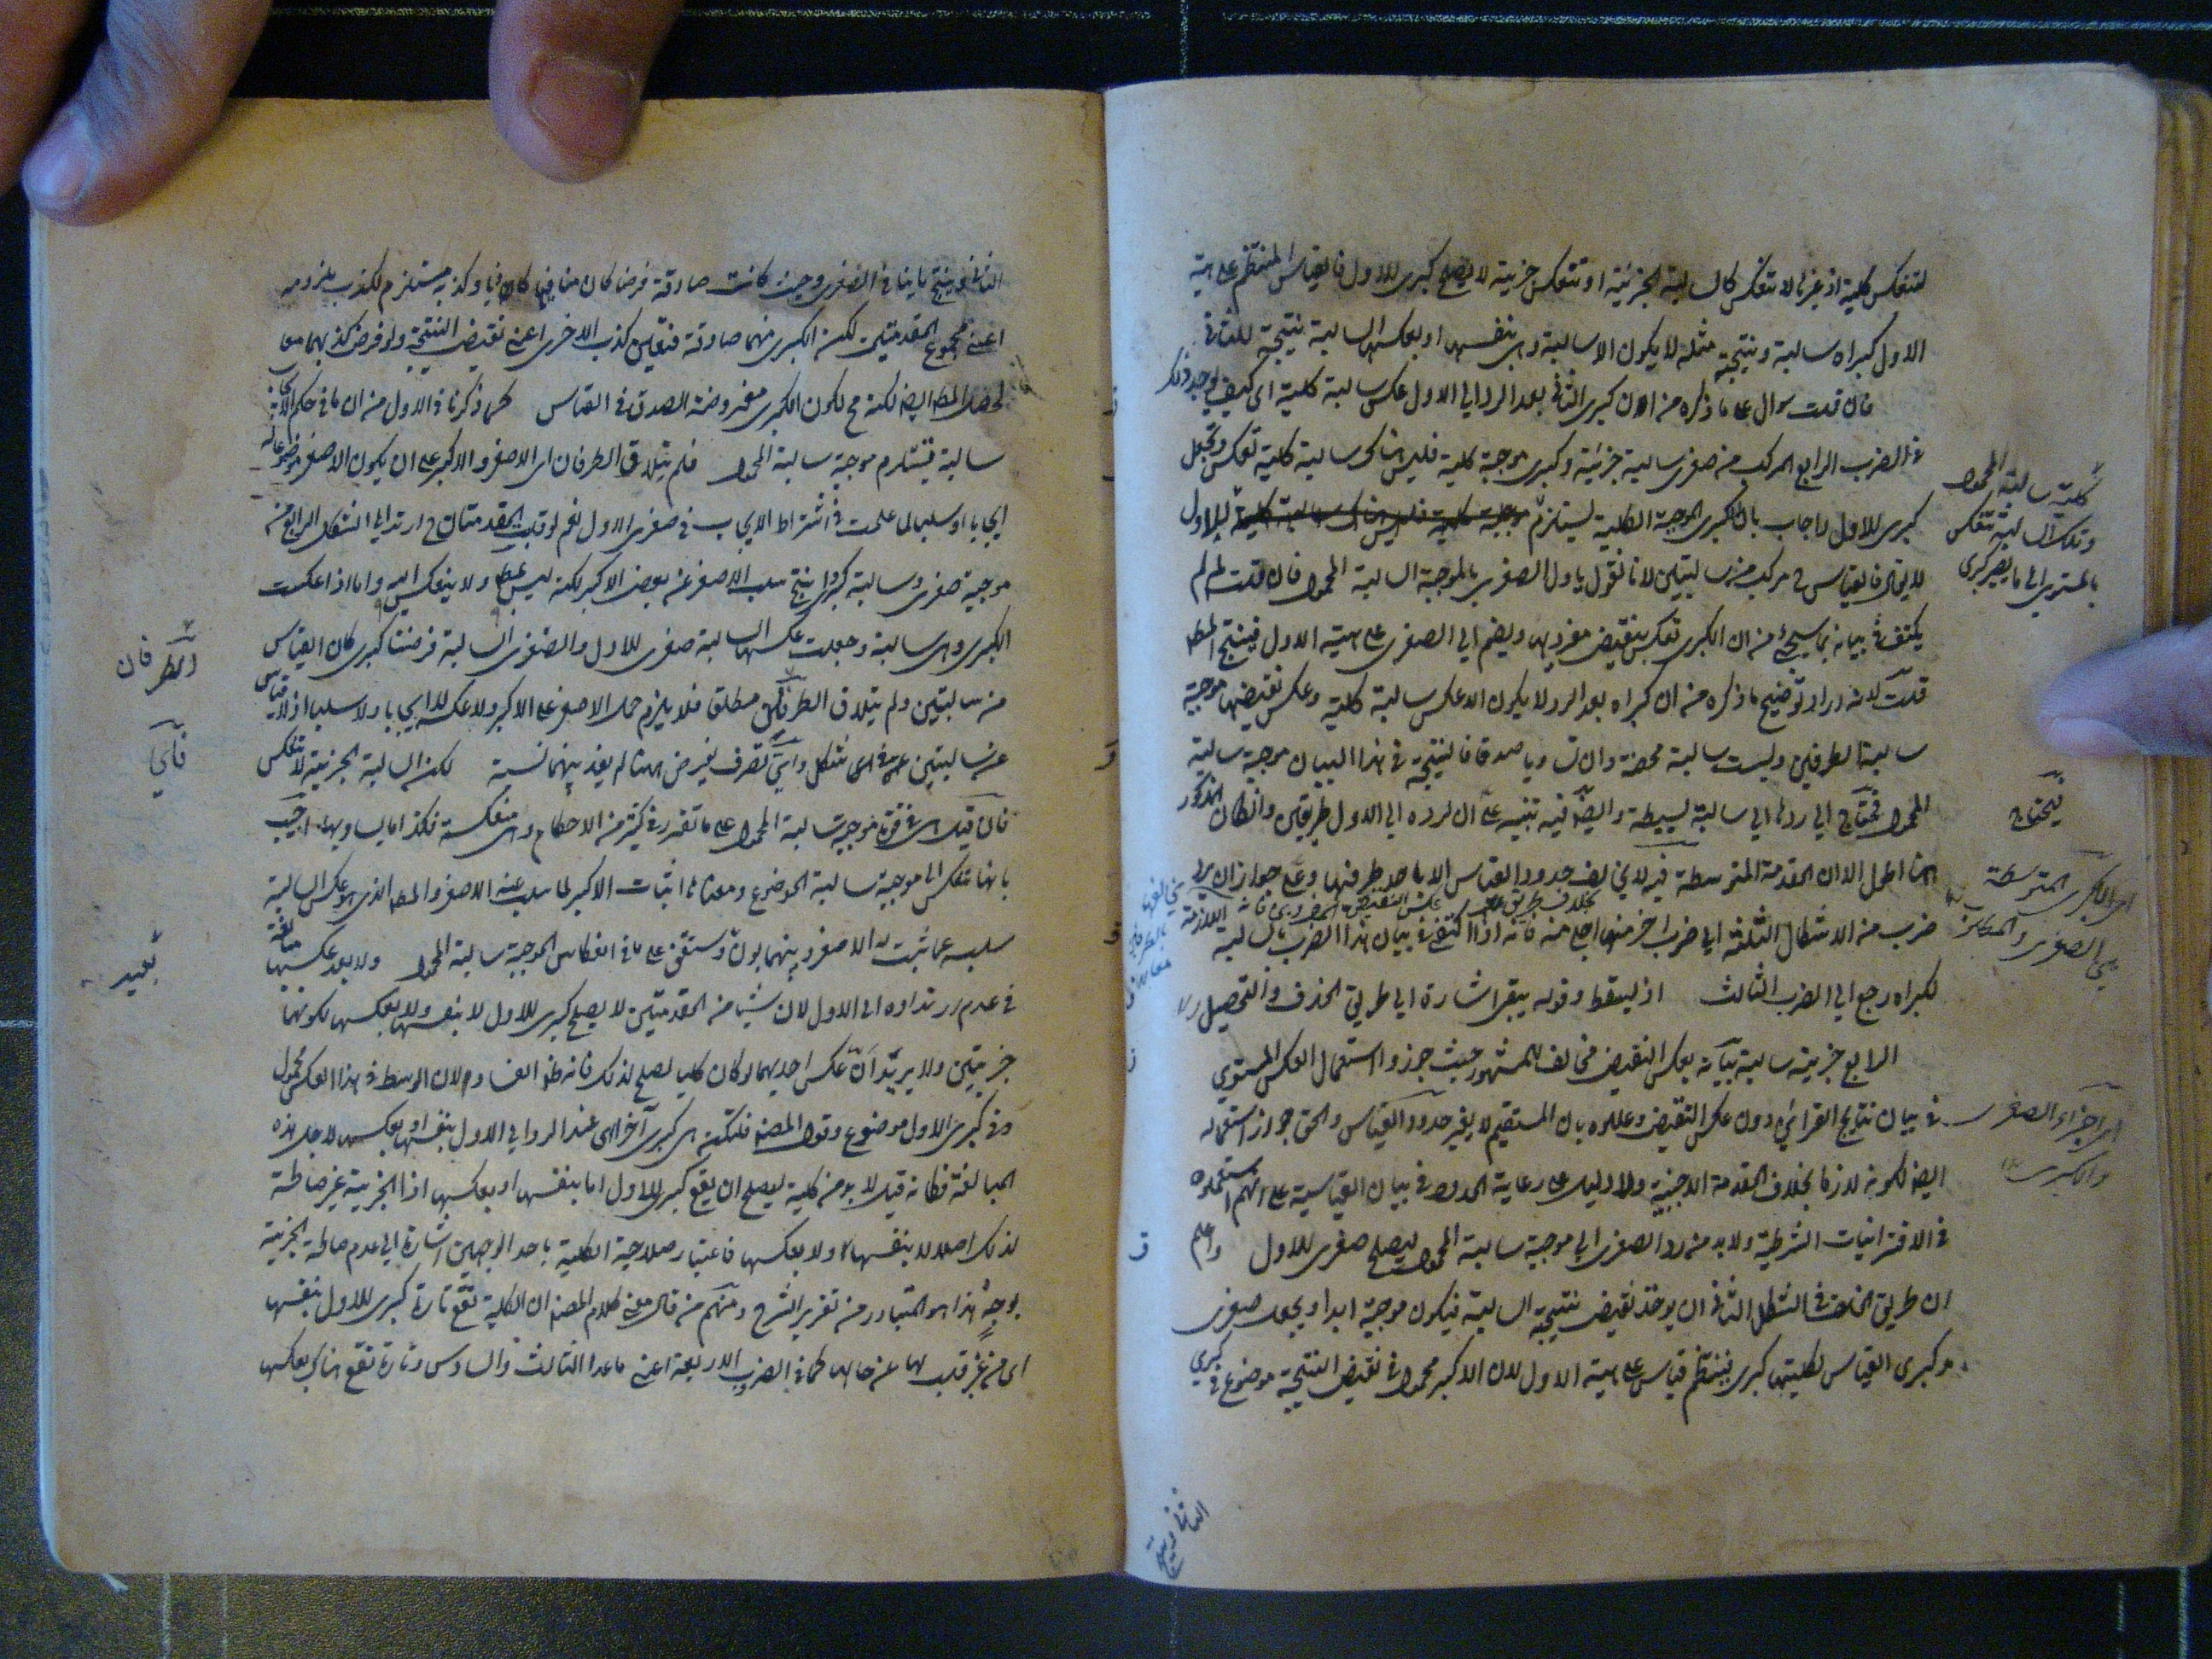 لتنعكس كلية اذ غيرها لا تنعكس كالسالبة الجزئية او تنعكس جزئية لا يصلح كبرى للاول فالقياس المنتظم على هيئة
الاول كبراه سالبة ونتيجة مثله لا يكون الا سالبة وهي بنفسها او بعكسها السالبة نتيجة للثاني
فان قلت سوال على ما ذكره من ان كبرى الثاني بعد الرد الى الاول عكس سالبة كلية اي كيف يوجد ذلك
في الضرب الرابع المركب من صغرى سالبة جزئية وكبرى موجبة كلية فليس هناك سالبة كلية تعكس وتجعل
كبرى للاول واجاب بان الكبرى الموجبة الكلية يستلزم موجبة كلية فليس هناك سالبة كلية للاول
لا يقال فالقياس ح مركب من سالبتين لانا نقول ياول الصغرى بالموجبة السالبة المحمول فان قلت لم لم
يكتف في بيانه بما سيجئ من ان الكبرى تعكس بنقيض مفرديها ويضم الى الصغرى على هيئة الاول فينتج المط
قلت لانه اراد توضيح ما ذكره من ان كبراه بعد الرد لا يكون الا عكس سالبة كلية وعكس نقيضها موجبة
سالبة الطرفين وليست سالبة محضة وان تساويا صدقا فالنتيجة في هذا البيان موجبة سالبة
المحمول فيحتاج الى ردها الى سالبة بسيطة وايضا فيه تنبيه على ان لرده الى الاول طريقين وان كان المذكور
هنا اطول الا ان المقدمة المتوسطة فيه لا يخالف حدود القياس الا باحد طرفيها وعلى جواز ان يرد
ضرب من الاشكال الثلثة الى ضرب اخر منها اجلى منه فانه اذا اكتفى في بيان هذا الضرب بالسالبة اللازمة
لكبراه رجع الى الضرب الثالث اذ ليسقط وقوله يبقى اشارة الى طريق الحذف والتحصيل
الرابع جزئية سالبة بيانه بعكس النقيض مخالف للمشهور حيث جوزوا استعمال العكس المستوي
في بيان نتايج القرائن دون عكس النقيض وعللوه بان المستقيم لا يغير حدود القياس والحق جواز استعماله
ايضا لكونه لازما بخلاف المقدمة الاجنبية ولا دليل على رعاية الحدود في بيان القياسية على انهم استعملوه
في الاقترانيات الشرطية ولا بد من رد الصغرى الى موجبة سالبة المحمول ليصلح صغرى للاول واعلم
ان طريق الخلف في الشكل الثاني ان يوخذ نقيض نتيجة السالبة فيكون موجبة ابدا ويجعل صغرى
وكبرى القياس لكليتها كبرى فينتظم قياس على هيئة الاول لان الاكبر محمول في نقيض النتيجة موضوع في كبرى
كلية سالبة المحمول
وتلك السالبة تنعكس
بالمستوي الى ما يصير كبرى
فيحتاج
اي الكبرى المتوسطة
بين الصغرى
اي اجزاء الصغرى
والكبرى
الثاني وينتج
الثاني وينتج ما ينافي الصغرى وحيث كانت صادقة فرضا كان منافيها كاذبا وكذبه مستلزم لكذب ملزومه
اعني مجموع المقدمتين لكن الكبرى منهما صادقة فتعين كذب الاخرى اعني نقيض النتيجة ولو فرض كذبهما معا
لحصل المط ايضا لكنه مح لكون الكبرى مفروضة الصدق في القياس كما ذكرنا في الاول من ان ما في حكم الايجاب
سالبة فيستلزم موجبة سالبة المحمول فلم يتلاق الطرفان اي الاصغر والاكبر على ان يكون الاصغر موضوعا له
ايجابا او سلبا لما علمت في اشتراط الايجاب في صغرى الاول نعم لو قلبت المقدمتان ح ارتد الى الشكل الرابع من
موجبة صغرى وسالبة كبرى وانتج سلب الاصغر عن بعض الاكبر لكنه ليس بمط ولا ينعكس اليه واما اذا عكست
الكبرى وهي سالبة وجعلت عكسها السالبة صغرى للاول والصغرى السالبة فرضنا كبرى كان القياس
من سالبتين ولم يتلاق الطرفان مطلقا فلا يلزم حمل الاصغر على الاكبر ولا عكسه لا ايجابا ولا سلبا اذ لا قياس
عن سالبتين في اي شكل واي تصرف يفرض هنا لم يفد بينهما نسبة لكن السالبة الجزئية لا تنعكس
فان قيل هي في قوة موجبة سالبة المحمول على ما تقرر في كثير من الاحكام وهي منعكسة فكذا ما يساويها اجيب
بانها تنعكس الى موجبة سالبة الموضوع ومعناها اثبات الاكبر لما سلب عنه الاصغر والمط الذي هو عكس السالبة
سلبه عما ثبت له الاصغر وبينهما بون وستقف على ما في انعكاس الموجبة سالبة المحمول ولا بعد عكسها مبالغة
في عدم ارتداده الى الاول لان شيئا من المقدمتين لا يصلح كبرى للاول لا بنفسها ولا بعكسها لكونهما
جزئيتين ولا يريد ان عكس احديهما لو كان كليا لصلح لذلك فانه ظ الفساد لان الوسط في هذا العكس محمول
وفي كبرى الاول موضوع وقول المصنف فلتكن هي كبرى آخرا اي عند الرد الى الاول بنفسها او بعكسها لاجل هذه
المبالغة فكانه قيل لا بد من كلية ليصلح ان يقع كبرى للاول اما بنفسها او بعكسها اذا الجزئية غير صالحة
لذلك اصلا لا بنفسها ولا بعكسها فاعتبار صلاحية الكلية باحد الوجهين اشارة الى عدم صالحية الجزئية
بوجه هذا هو المتبادر من تقرير الشرح ومنهم من قال معنى كلام المصنف ان الكلية تقع تارة كبرى للاول بنفسها
اي من غير قلب لها عن حالها كما في الضروب الاربعة اعني ما عدا الثالث والسادس وتارة تقع هناك بعكسها
الطرفان
فاي
بعيد